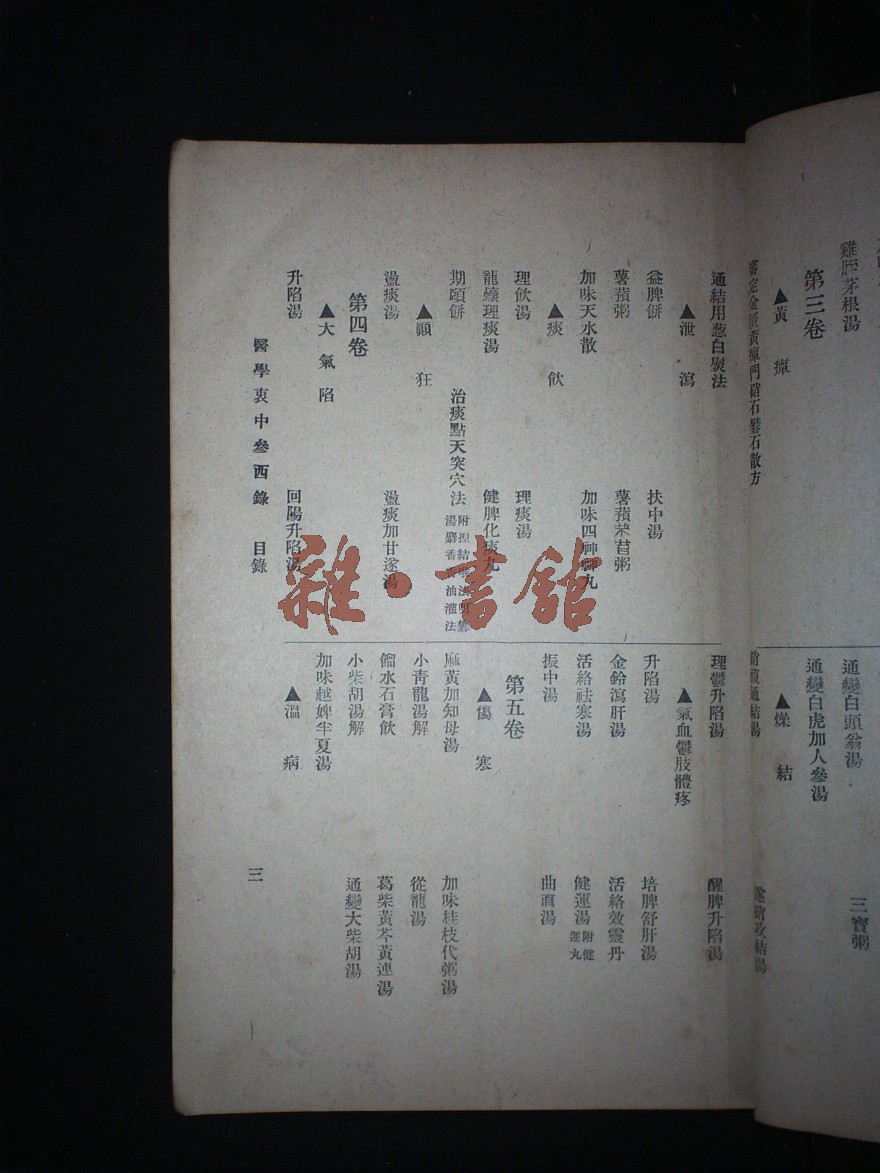 雞胵茅根湯
第三卷
▲黃疸
審定金匱黃疸門硝石礬石散方
通變白頭翁湯
三寶粥
通變白虎加人參湯
▲燥結
硝菔通結湯
遂硝攻結湯
通結用葱白熨法
▲泄瀉
益脾餅
扶中湯
薯蕷粥
薯蕷芣苢粥
加味天水散
加味四神丸
▲痰飲
理飲湯
理痰湯
龍蠔理痰湯
健脾化痰丸
期頤餅
治痰點天突穴法
▲顚狂
盪痰湯
盪痰加甘遂湯
第四卷
▲大氣陷
升陷湯
回陽升陷湯
理鬱升陷湯
醒脾升陷湯
▲氣血鬱肢體疼
升陷湯
培脾舒肝湯
金鈴瀉肝湯
活絡效靈丹
活絡祛寒湯
健運湯 附健運丸
振中湯
曲直湯
第五卷
▲傷寒
麻黃加知母湯
加味桂枝代粥湯
小青龍湯解
從龍湯
餾水石膏飲
葛柴黃芩黃連湯
小柴胡湯解
通變大柴胡湯
加味越婢半夏湯
▲溫病
醫學衷中參西錄 目錄
三
雜·書館